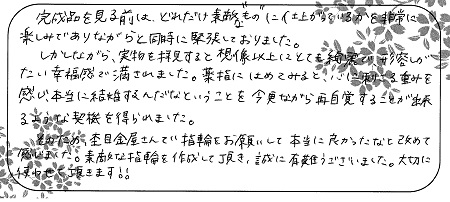 完成品を見る前は、どれだけ素敵な"もの"に仕上がっているかを非常に
楽しみでありながらと同時に緊張しておりました。
しかしながら、実物を拝見すると想像以上にとても綺麗で、形容しが
たい幸福感で満されました。薬指にはめてみると、心に刺さる重みを
感じ、本当に結婚するんだなということを今更ながら再自覚することが出来
るような契機を得られました。
そのため、杢目金屋さんで指輪をお願いして本当に良かったなと改めて
感じました。素敵な指輪を作成して頂き、誠に有難うございました。大切に
使わせて頂きます!!